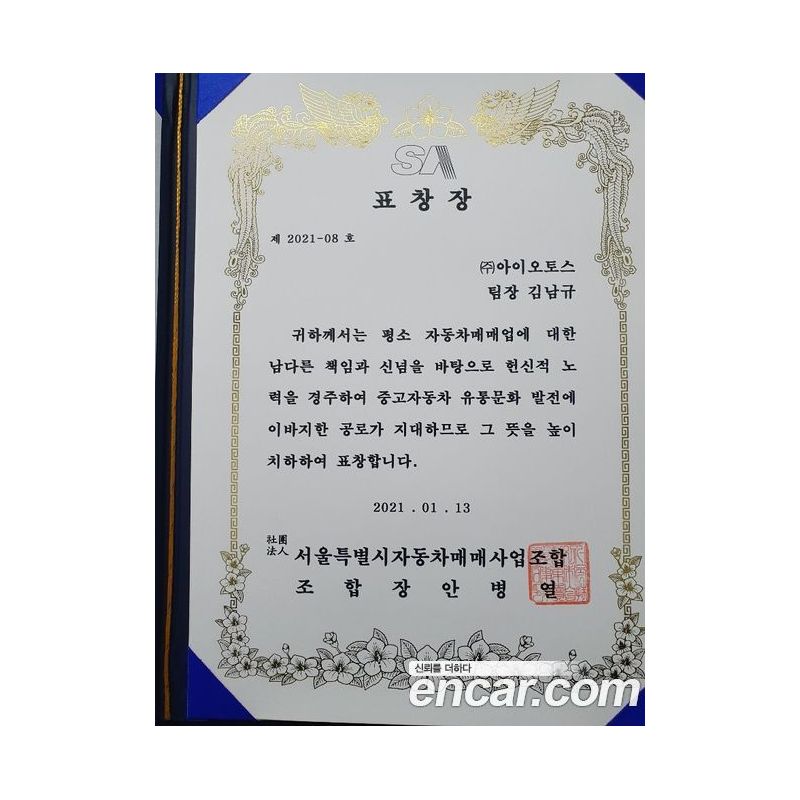 SA
표창장
제 2021-08 호
㈜아이오토스
팀장 김남규
귀하께서는 평소 자동차매매업에 대한
남다른 책임과 신념을 바탕으로 헌신적 노
력을 경주하여 중고자동차 유통문화 발전에
이바지한 공로가 지대하므로 그 뜻을 높이
치하하여 표창합니다.
2021 . 01 . 13
社團
法人 서울특별시자동차매매사업조합
조 합 장 안 병 열
신뢰를 더하다
encar.com